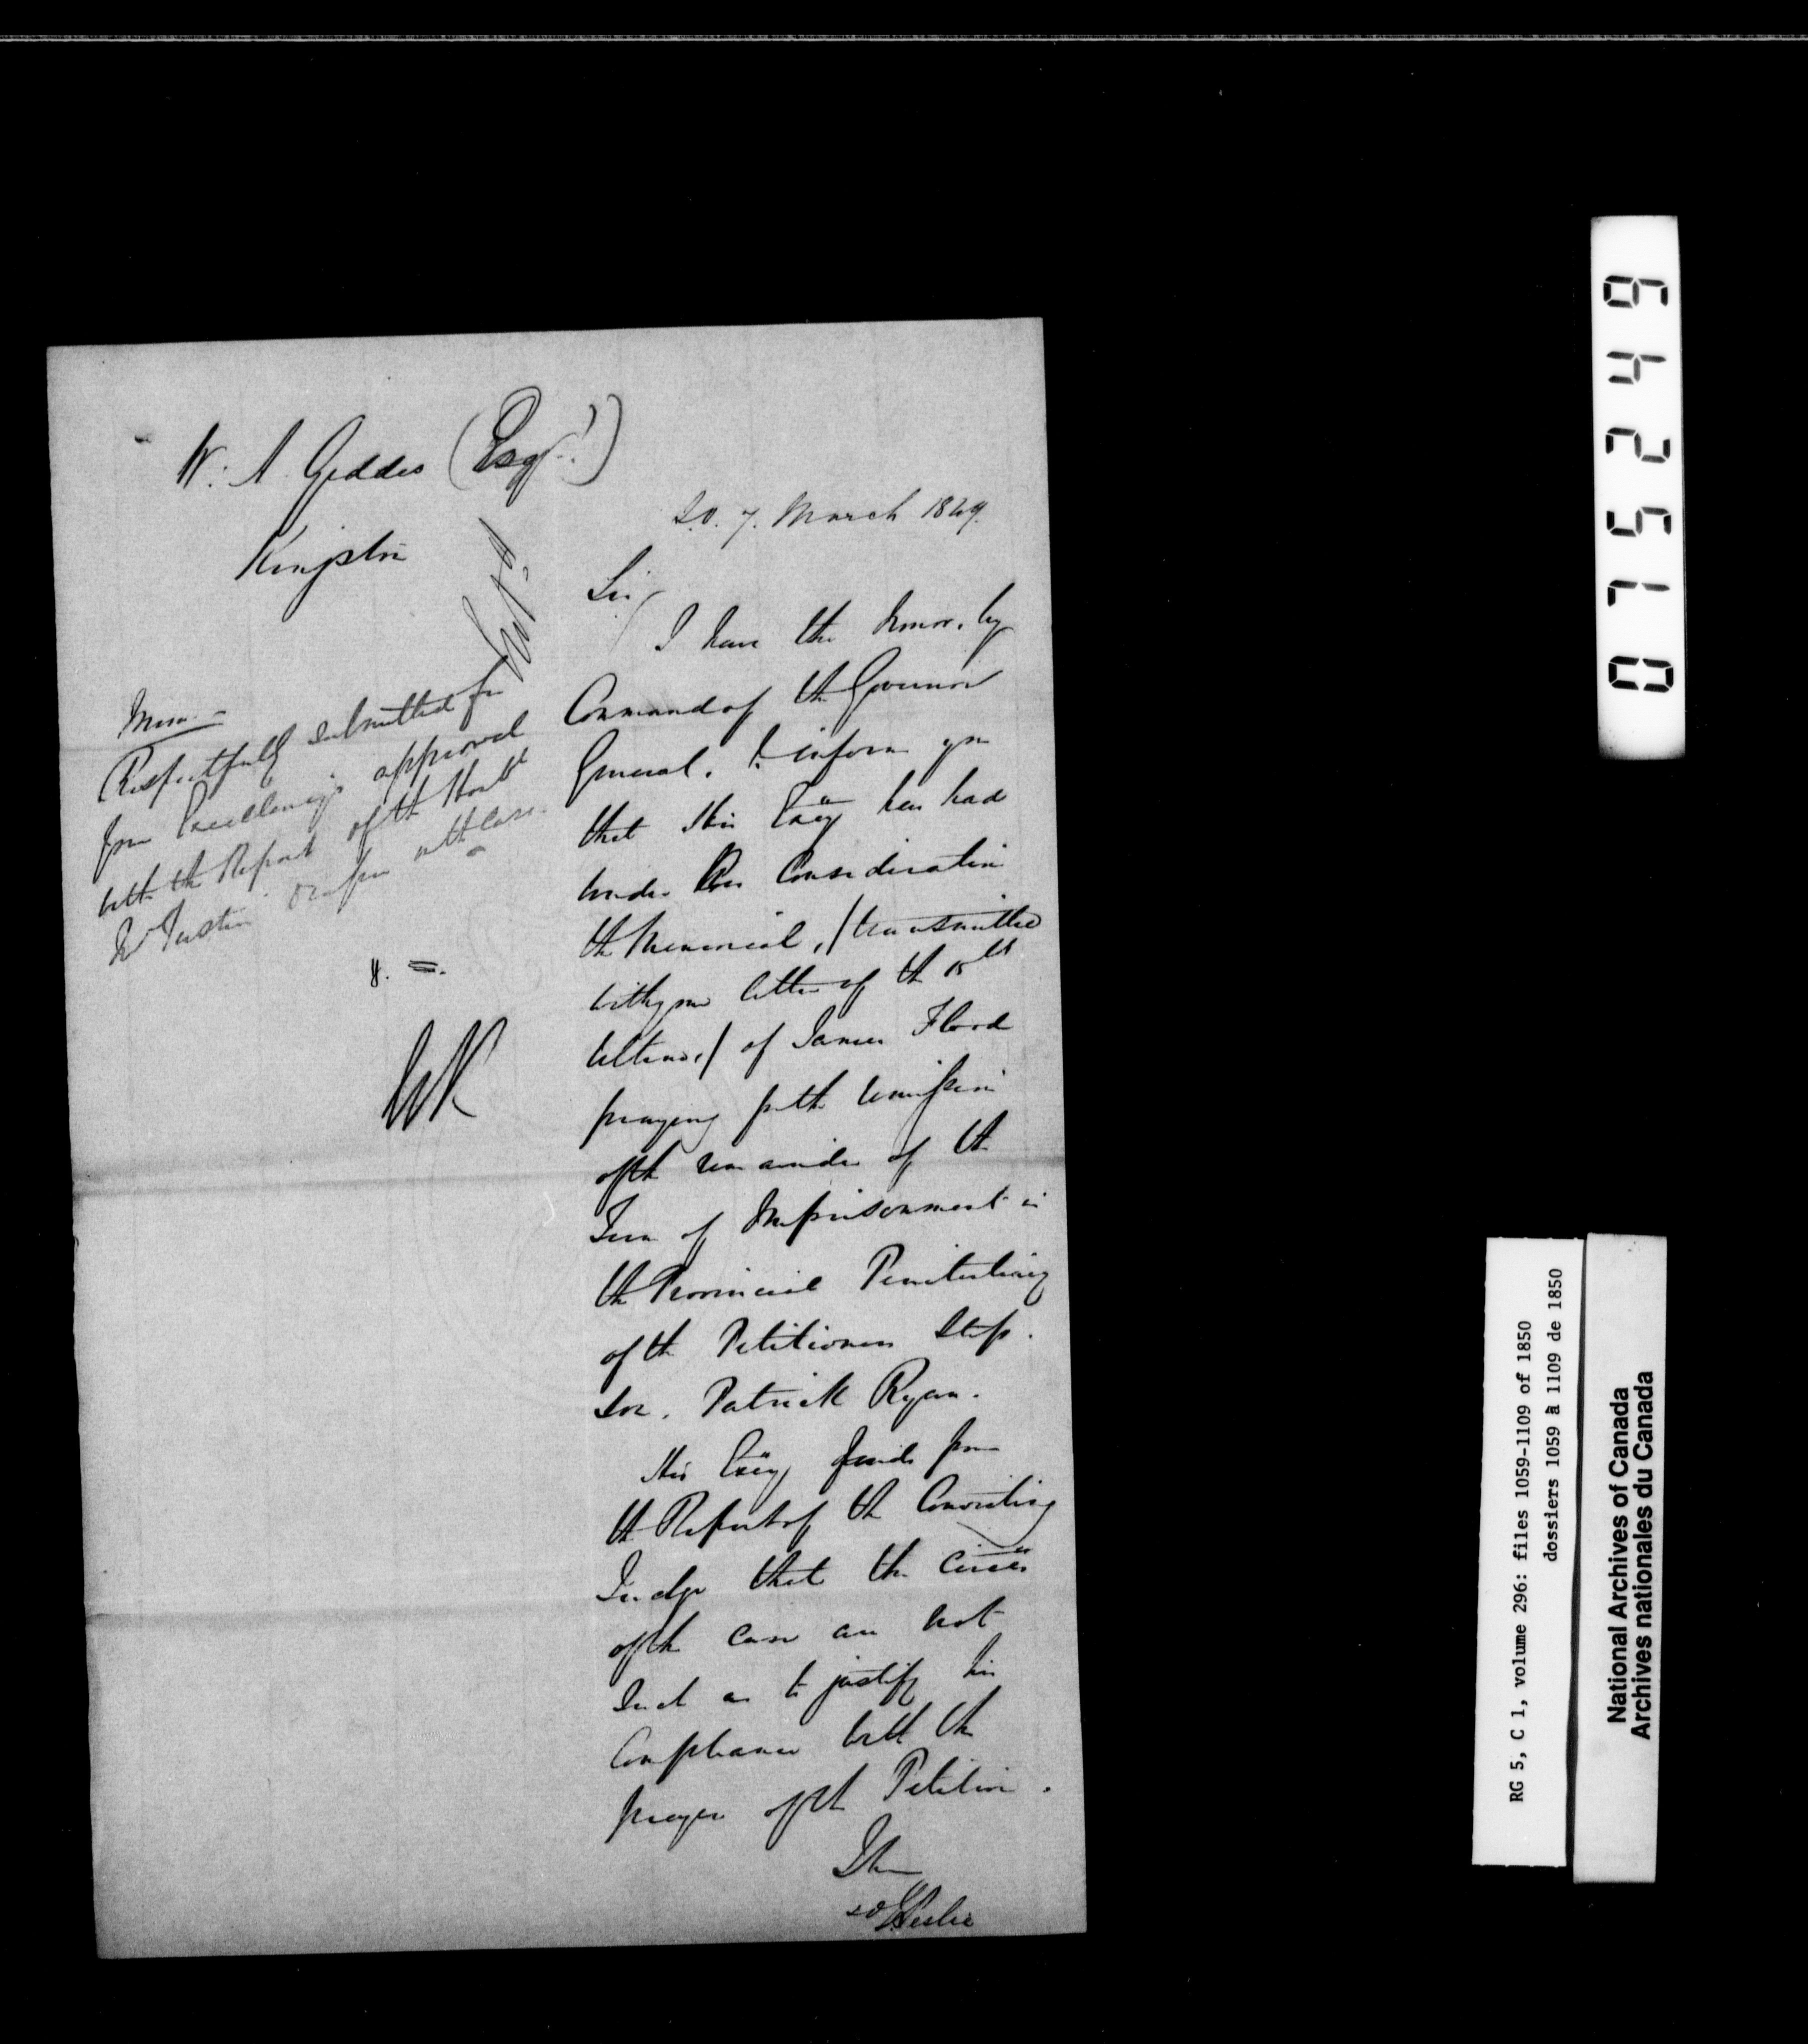 W. A. Geddes (Esqr.)
Kingston
S.O. 7. March 1849.
Sir/
I have the honor, by
Command of the Governor
General, to inform you
that His Excy has had
under his Consideration
the Memorial, /transmitted
with your letter of the 15th
ultimo,/ of James Flood
praying for the remission
of the remainder of the
Term of Imprisonment in
the Provincial Penitentiary
of the Petitioners Step
Son, Patrick Ryan.
His Excy finds from
the Report of the Convicting
Judge that the circes
of the case are not
such as to justify his
Compliance with the
prayer of the Petition.
I h
sd J Leslie
Mem
Respectfully submitted for
Your Excellency's approval
with the Report of the Honble
Mr Justice on the case.
075249
RG 5, C 1, volume 296: files 1059-1109 of 1850
dossiers 1059 à 1109 de 1850
National Archives of Canada
Archives nationales du Canada